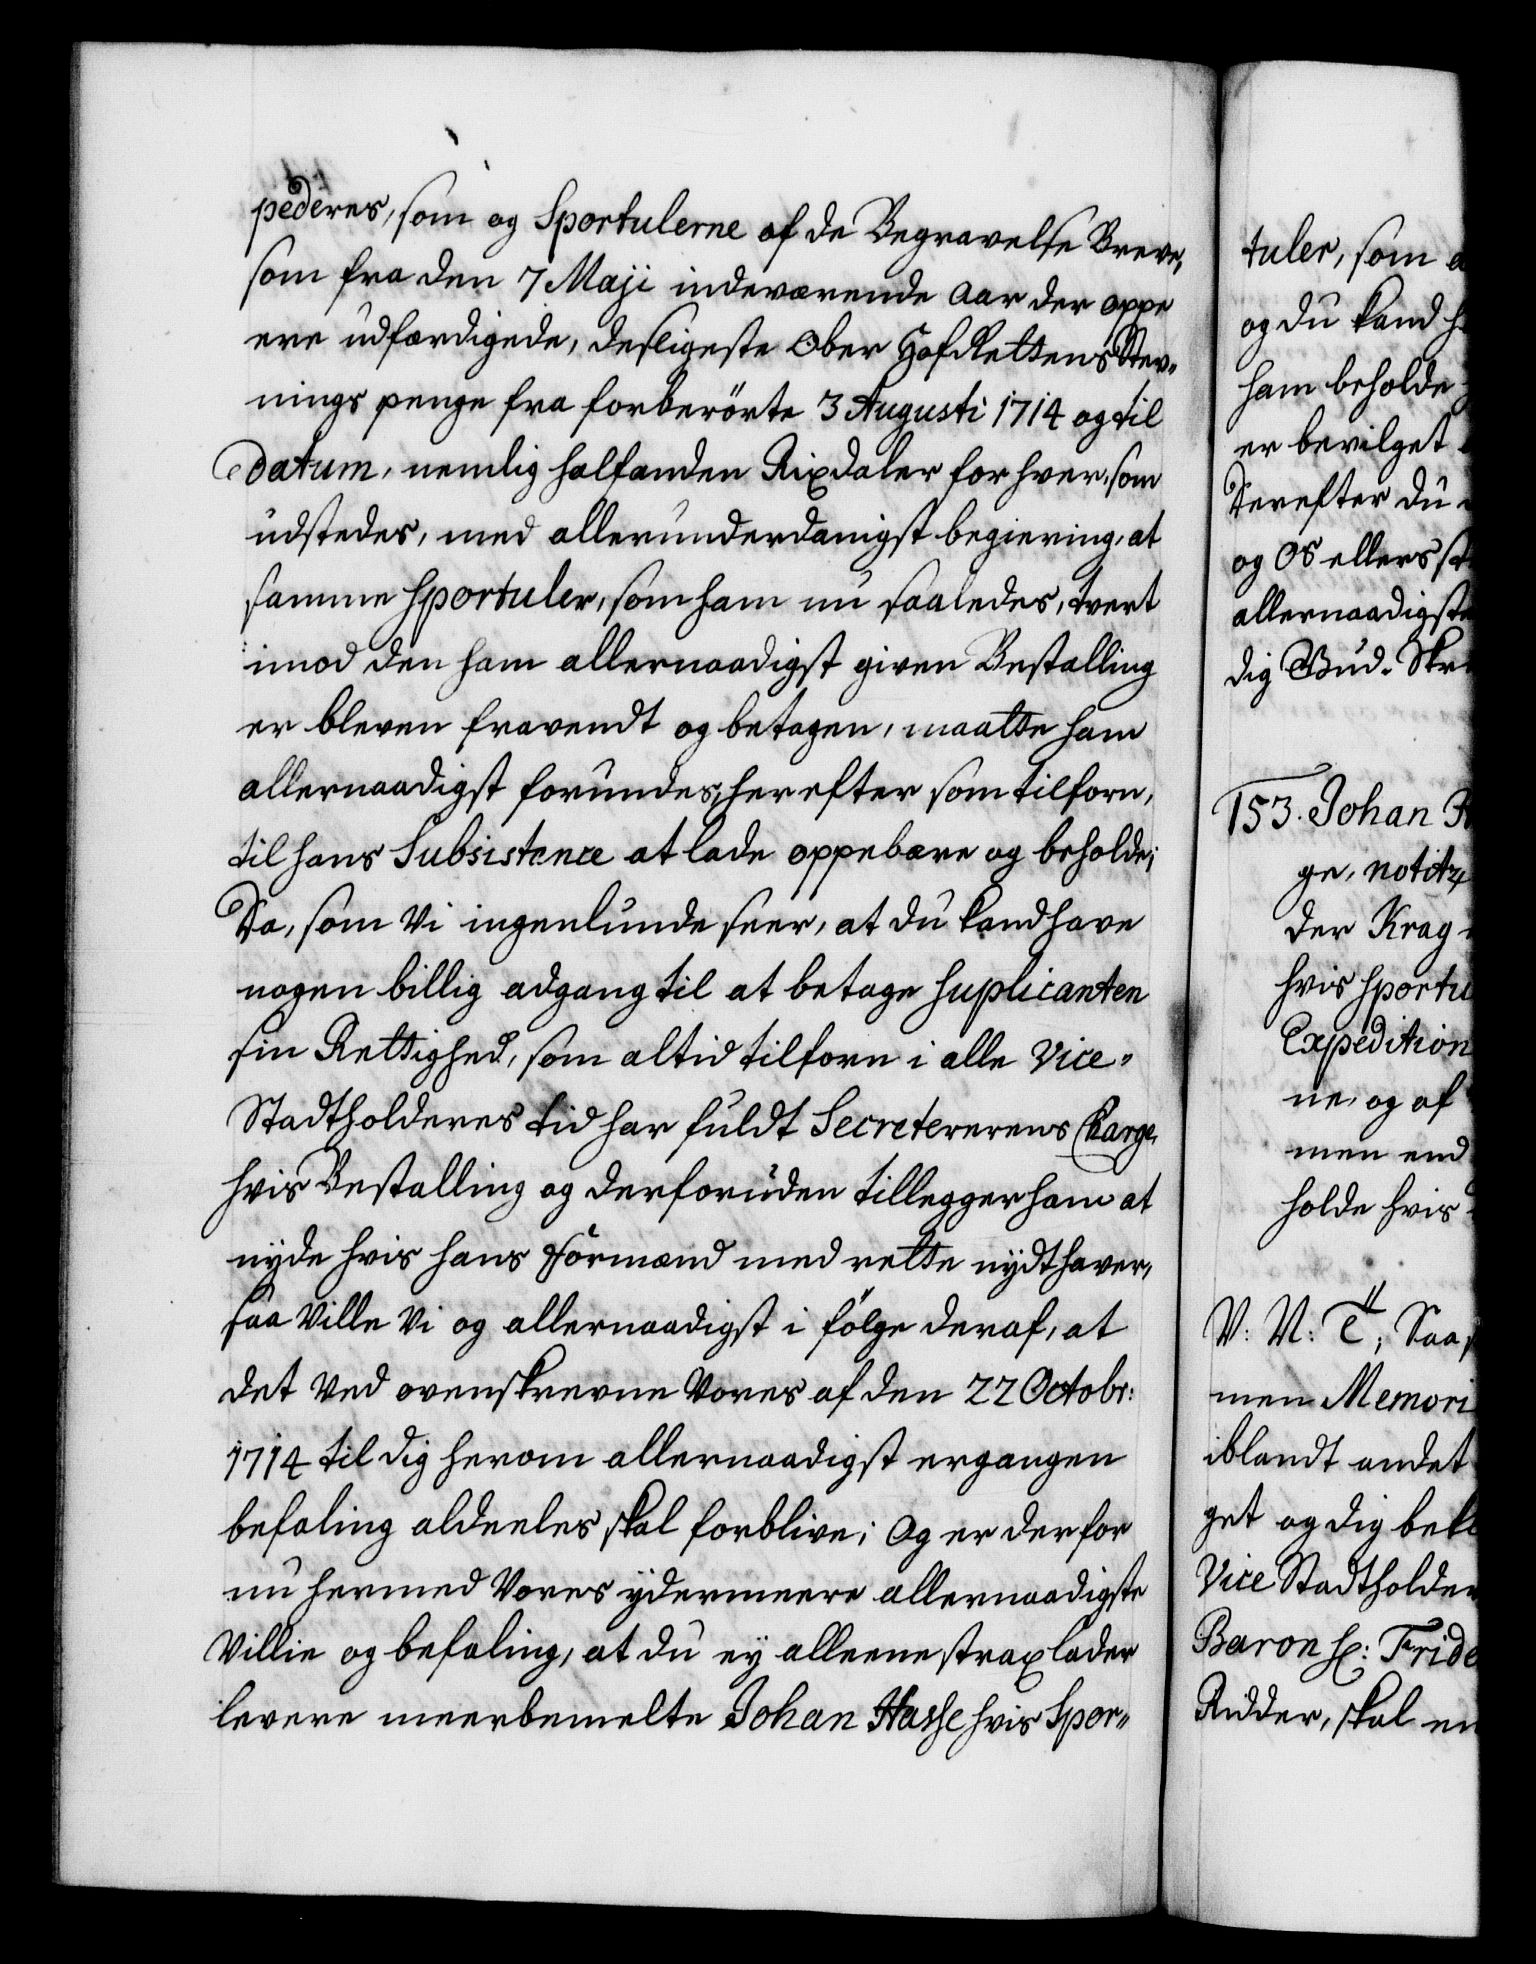 pederes, som og Sportulerne af de Begravelse Breve,
som fra den 7 Maji indeværende Aar der oppe
ere udfærdigede, desligeste Ober HofRettens Stev-
nings penge fra forberörte 3 Augusti 1714 og til
datum, nemlig halfanden Rixdaler for hver, som
udstedes, med allerunderdanigst begiering, at
samme Sportuler, som ham nu saaledes, tvert
imod den ham allernaadigst given Bestalling
er bleven fravendt og betagen, maatte ham
allernaadigst forundes, her efter som tilforn,
til hans Subsistence at lade oppebære og beholde;
Da, som Vi ingenlunde seer, at du kand have
nogen billig adgang til at betage Suplicanten
sin Rettighed, som altid tilforn i alle Vice-
Stadtholderes tid har fuldt Secretererens Charge,
hvis Bestalling og derforuden tillegger ham at
nyde hvis hans Formænd med rette nydt haver,
saa Ville Vi og allernaadigst i fölge deraf, at
det Ved ovenskrevne Vores af den 22 Octobr:
1714 til dig herom allernaadigst ergangen
befaling aldeeles skal forblive; Og er derfor
nu hermed Vores ydermeere allernaadigste
Villie og befaling, at du ey alleene strax lader
levere meerbemelte Johan Hasse hvis Spor-
tuler, som
og du kand
ham beholde
er bevilget
Derefter du
og Os ellers
allernaadigste
dig Gud. Skr
153. Johan
ge, notitz
der Krag
hvis Sportu
Expedition
ne, og af
men end
holde hvis
V: N: T; Saa
men Memori
iblandt andet
get og dig bek
Vice Stadtholder
Baron H: Fride
Ridder, skal en